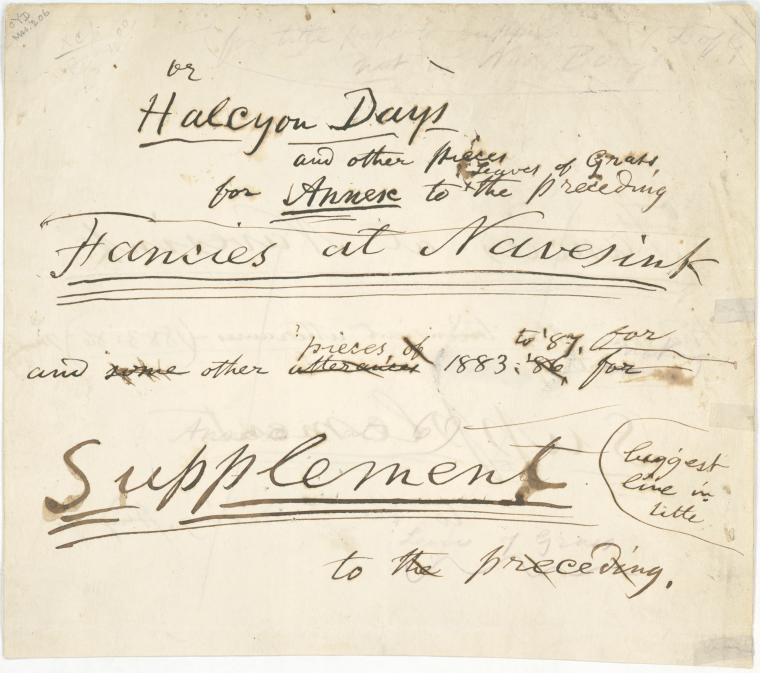 or
Halcyon Days
and other pieces
Leaves of Grass
for Annex to the preceding
Fancies at Navesink
pieces of to '87, for
and some other utterances 1883-'86, for
Supplement
biggest
line in
title
to the preceding.